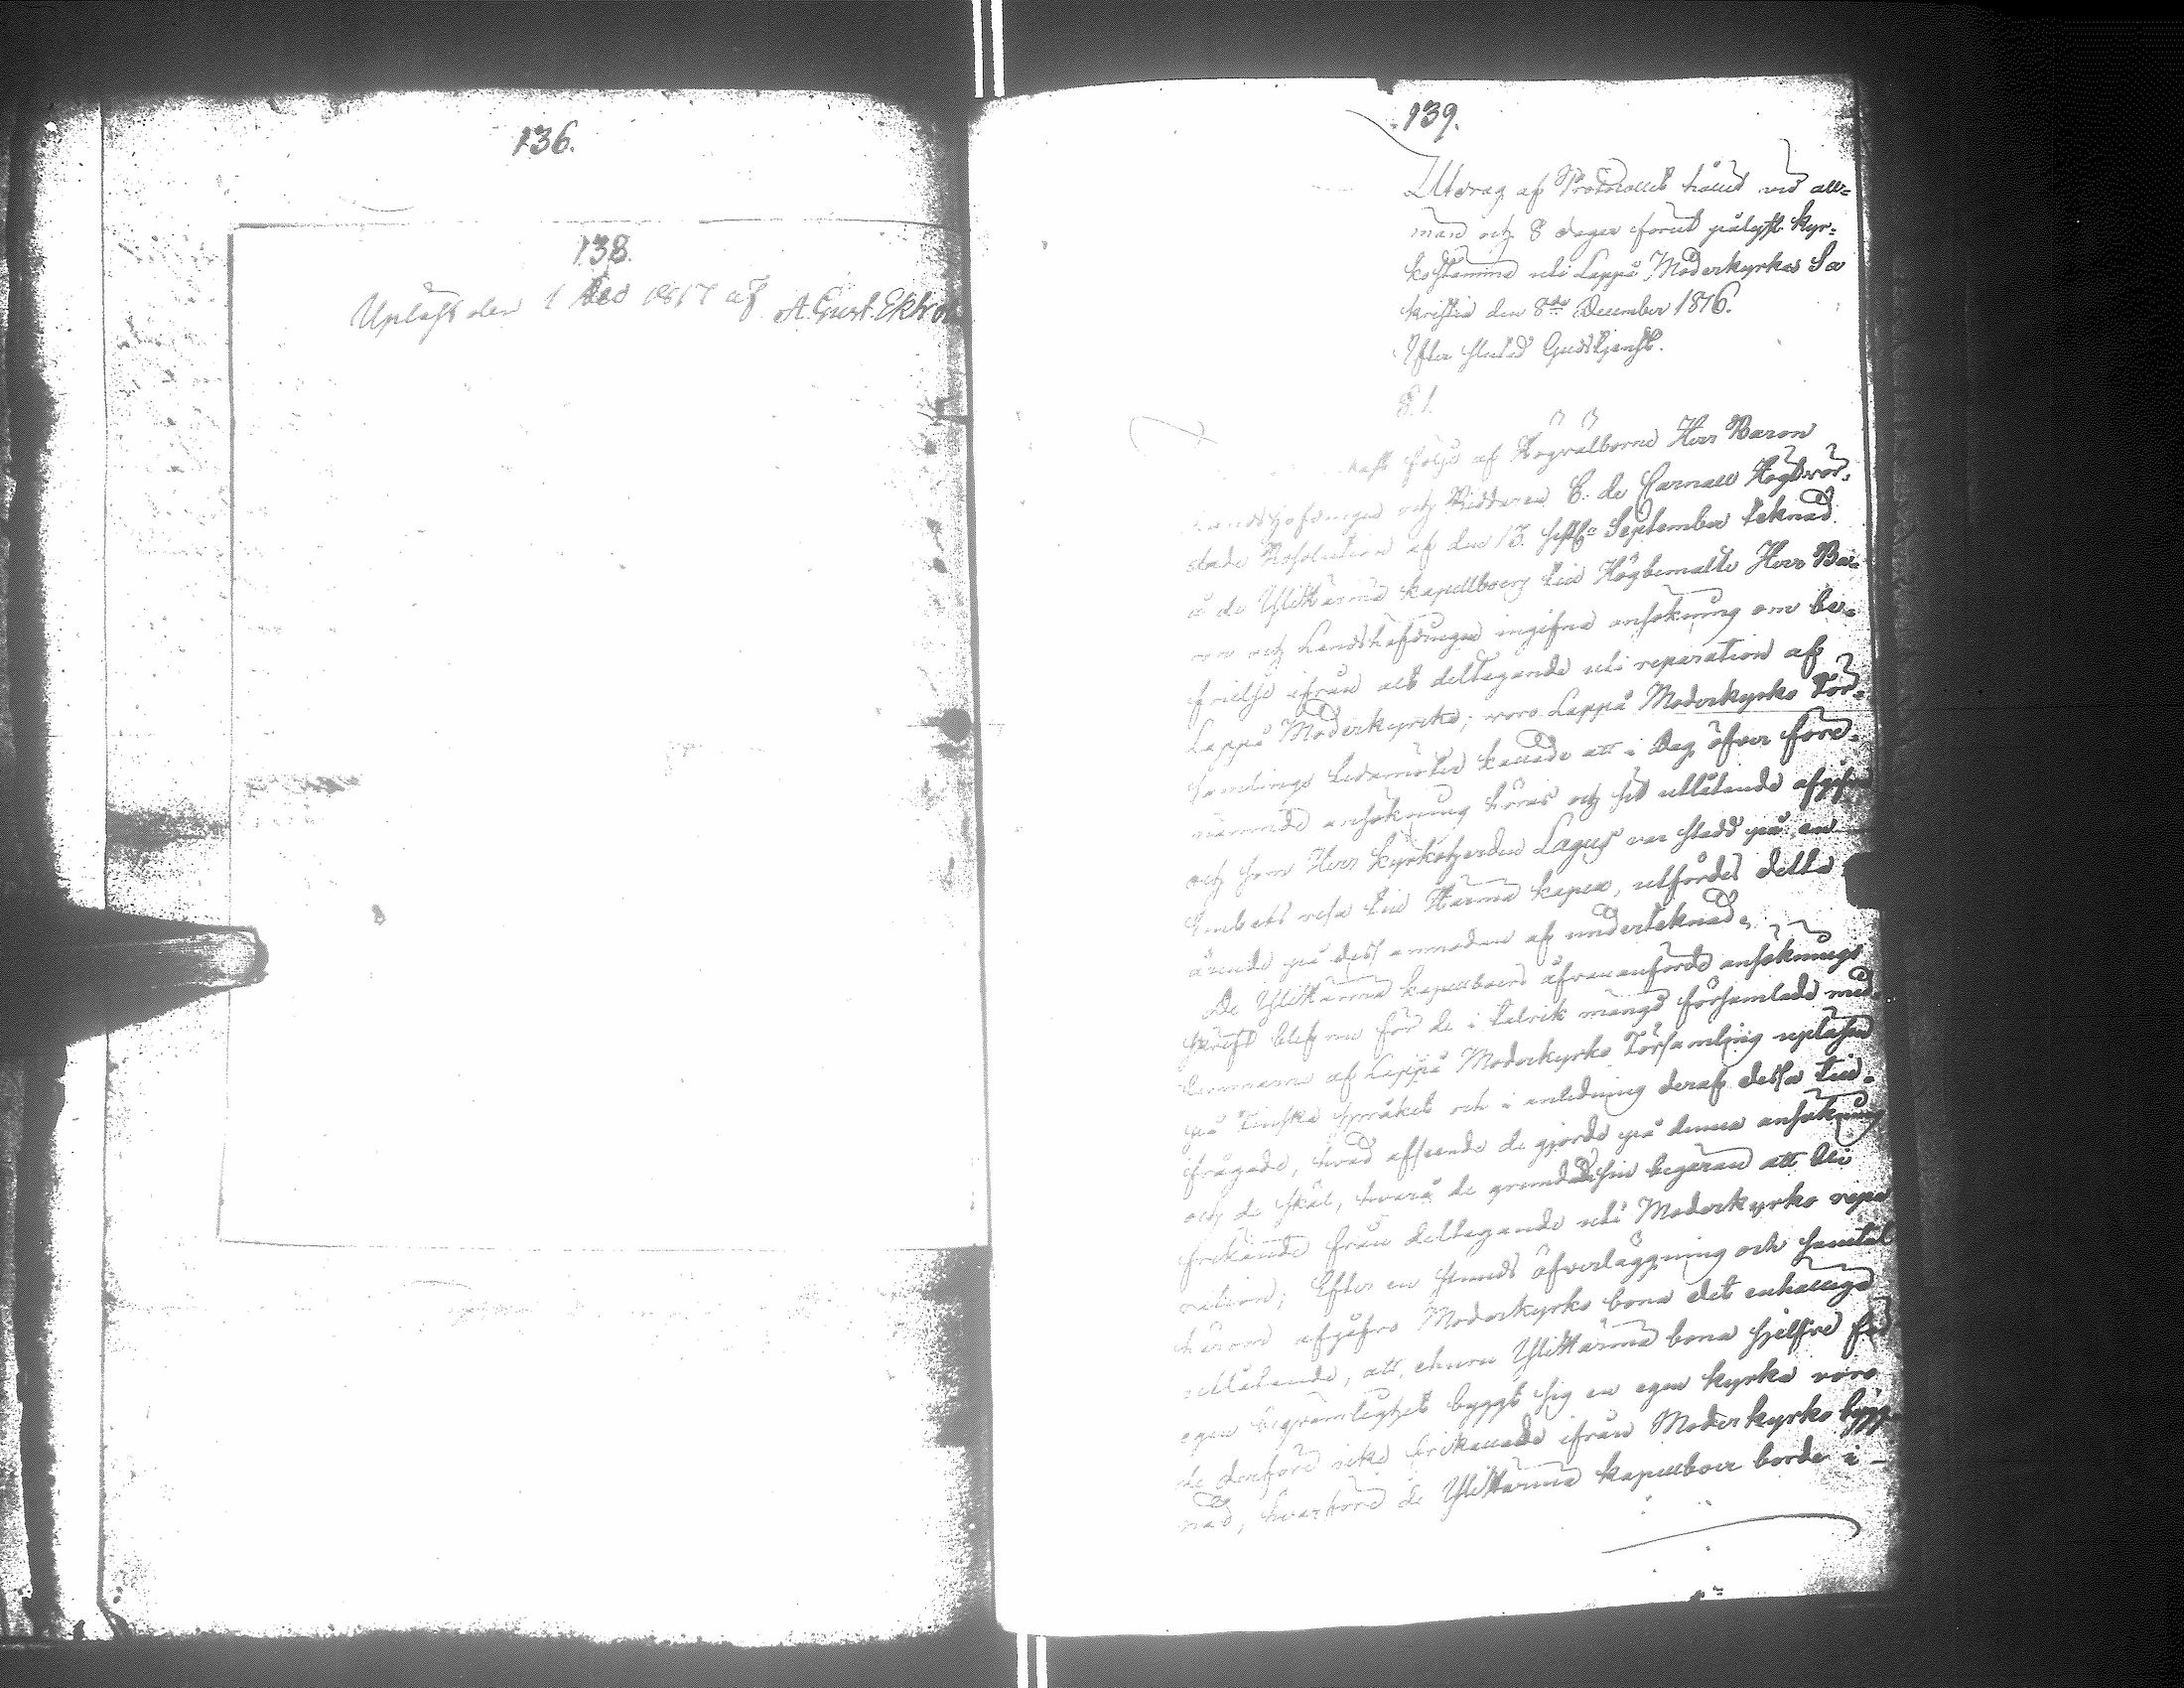 136.
138.
Upläst den 1 Dec 1817 af A. Gust. Ekstrom
139.
Utdrag af Protocollet hållet vid all=
män och 8 dagar förut pålyst kyr=
kostämma uti Lappå Moderkyrkas Sa
kristia den 8de December 1816.
Efter slutad Gudstjenst.
§. 1.
följe af Högvälborne Herr Baron
Landshöfdingen och Riddaren C. de Carnall Högtvör=
dade Resolution af den 13. sistl. September teknad
å de Ylihärmä kapellboers till Högbemälte Herr Ba=
ron och Landshöfdingen ingifna ansökning om be=
frielse ifrån alt deltagande uti reparation af
Lappå Moderkyrka; voro Lappå Moderkyrko För=
samlings Ledamöter kallade att i dag öfver före=
nämnde ansökning höras och sit utlåtande afgifva
och som Herr Kyrkoherden Lagus var stadd på en
Embets resa till Härmä kapell, utfördes detta
ärende på dess anmodan af underteknad.
De Ylihärmä kapellboers åfvananförde ansöknings
skrift blef nu för de i talrik mängd församlade med=
lemmarne af Lappå Moderkyrko Församling upläsen
på Finska språket och i anledning deraf dessa till=
frågade, hvad afseende de gjorde på denna ansökning
och de skäl, hvarå de grundade sin begäran att bli
frikände från deltagande uti Moderkyrko repa
ration; Efter en stunds öfverläggning och samtal
härom afgåfvo Moderkyrko boerne det enhälliga
utlåtande, att, ehuru Ylihärmä boerne sjelfve för
egen beqvämlighet bygt sig en egen kyrka voro
de derföre icke frikallade ifrån Moderkyrko bygg=
nad, hvarföre de Ylihärmä kapellboer borde i